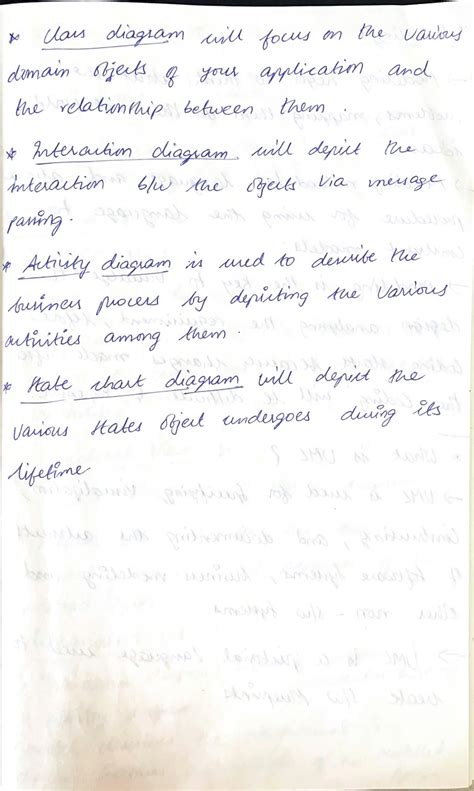 * Class diagram will focus on the various
domain objects of your application and
the relationship between them.
* Interaction diagram will depict the
interaction b/w the objects via message
passing.
* Activity diagram is used to describe the
business process by depicting the various
activities among them.
* State chart diagram will depict the
various states object undergoes during its
lifetime